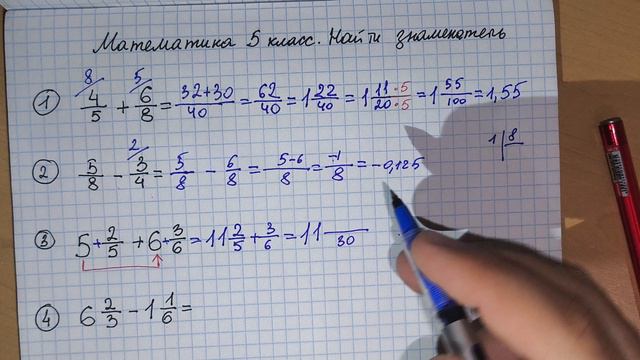 Математика 5 класс. Найти знаменатель
1 8/ 4/5 + 5/ 6/8 = 32+30/40 = 62/40 = 1 22/40 = 1 11·5/20·5 = 1 55/100 = 1,55
2 5/8 - 2/ 3/4 = 5/8 - 6/8 = 5-6/8 = -1/8 = -0,125
1 8
3 5 + 2/5 + 6 + 3/6 = 11 2/5 + 3/6 = 11 /30
4 6 2/3 - 1 1/6 =